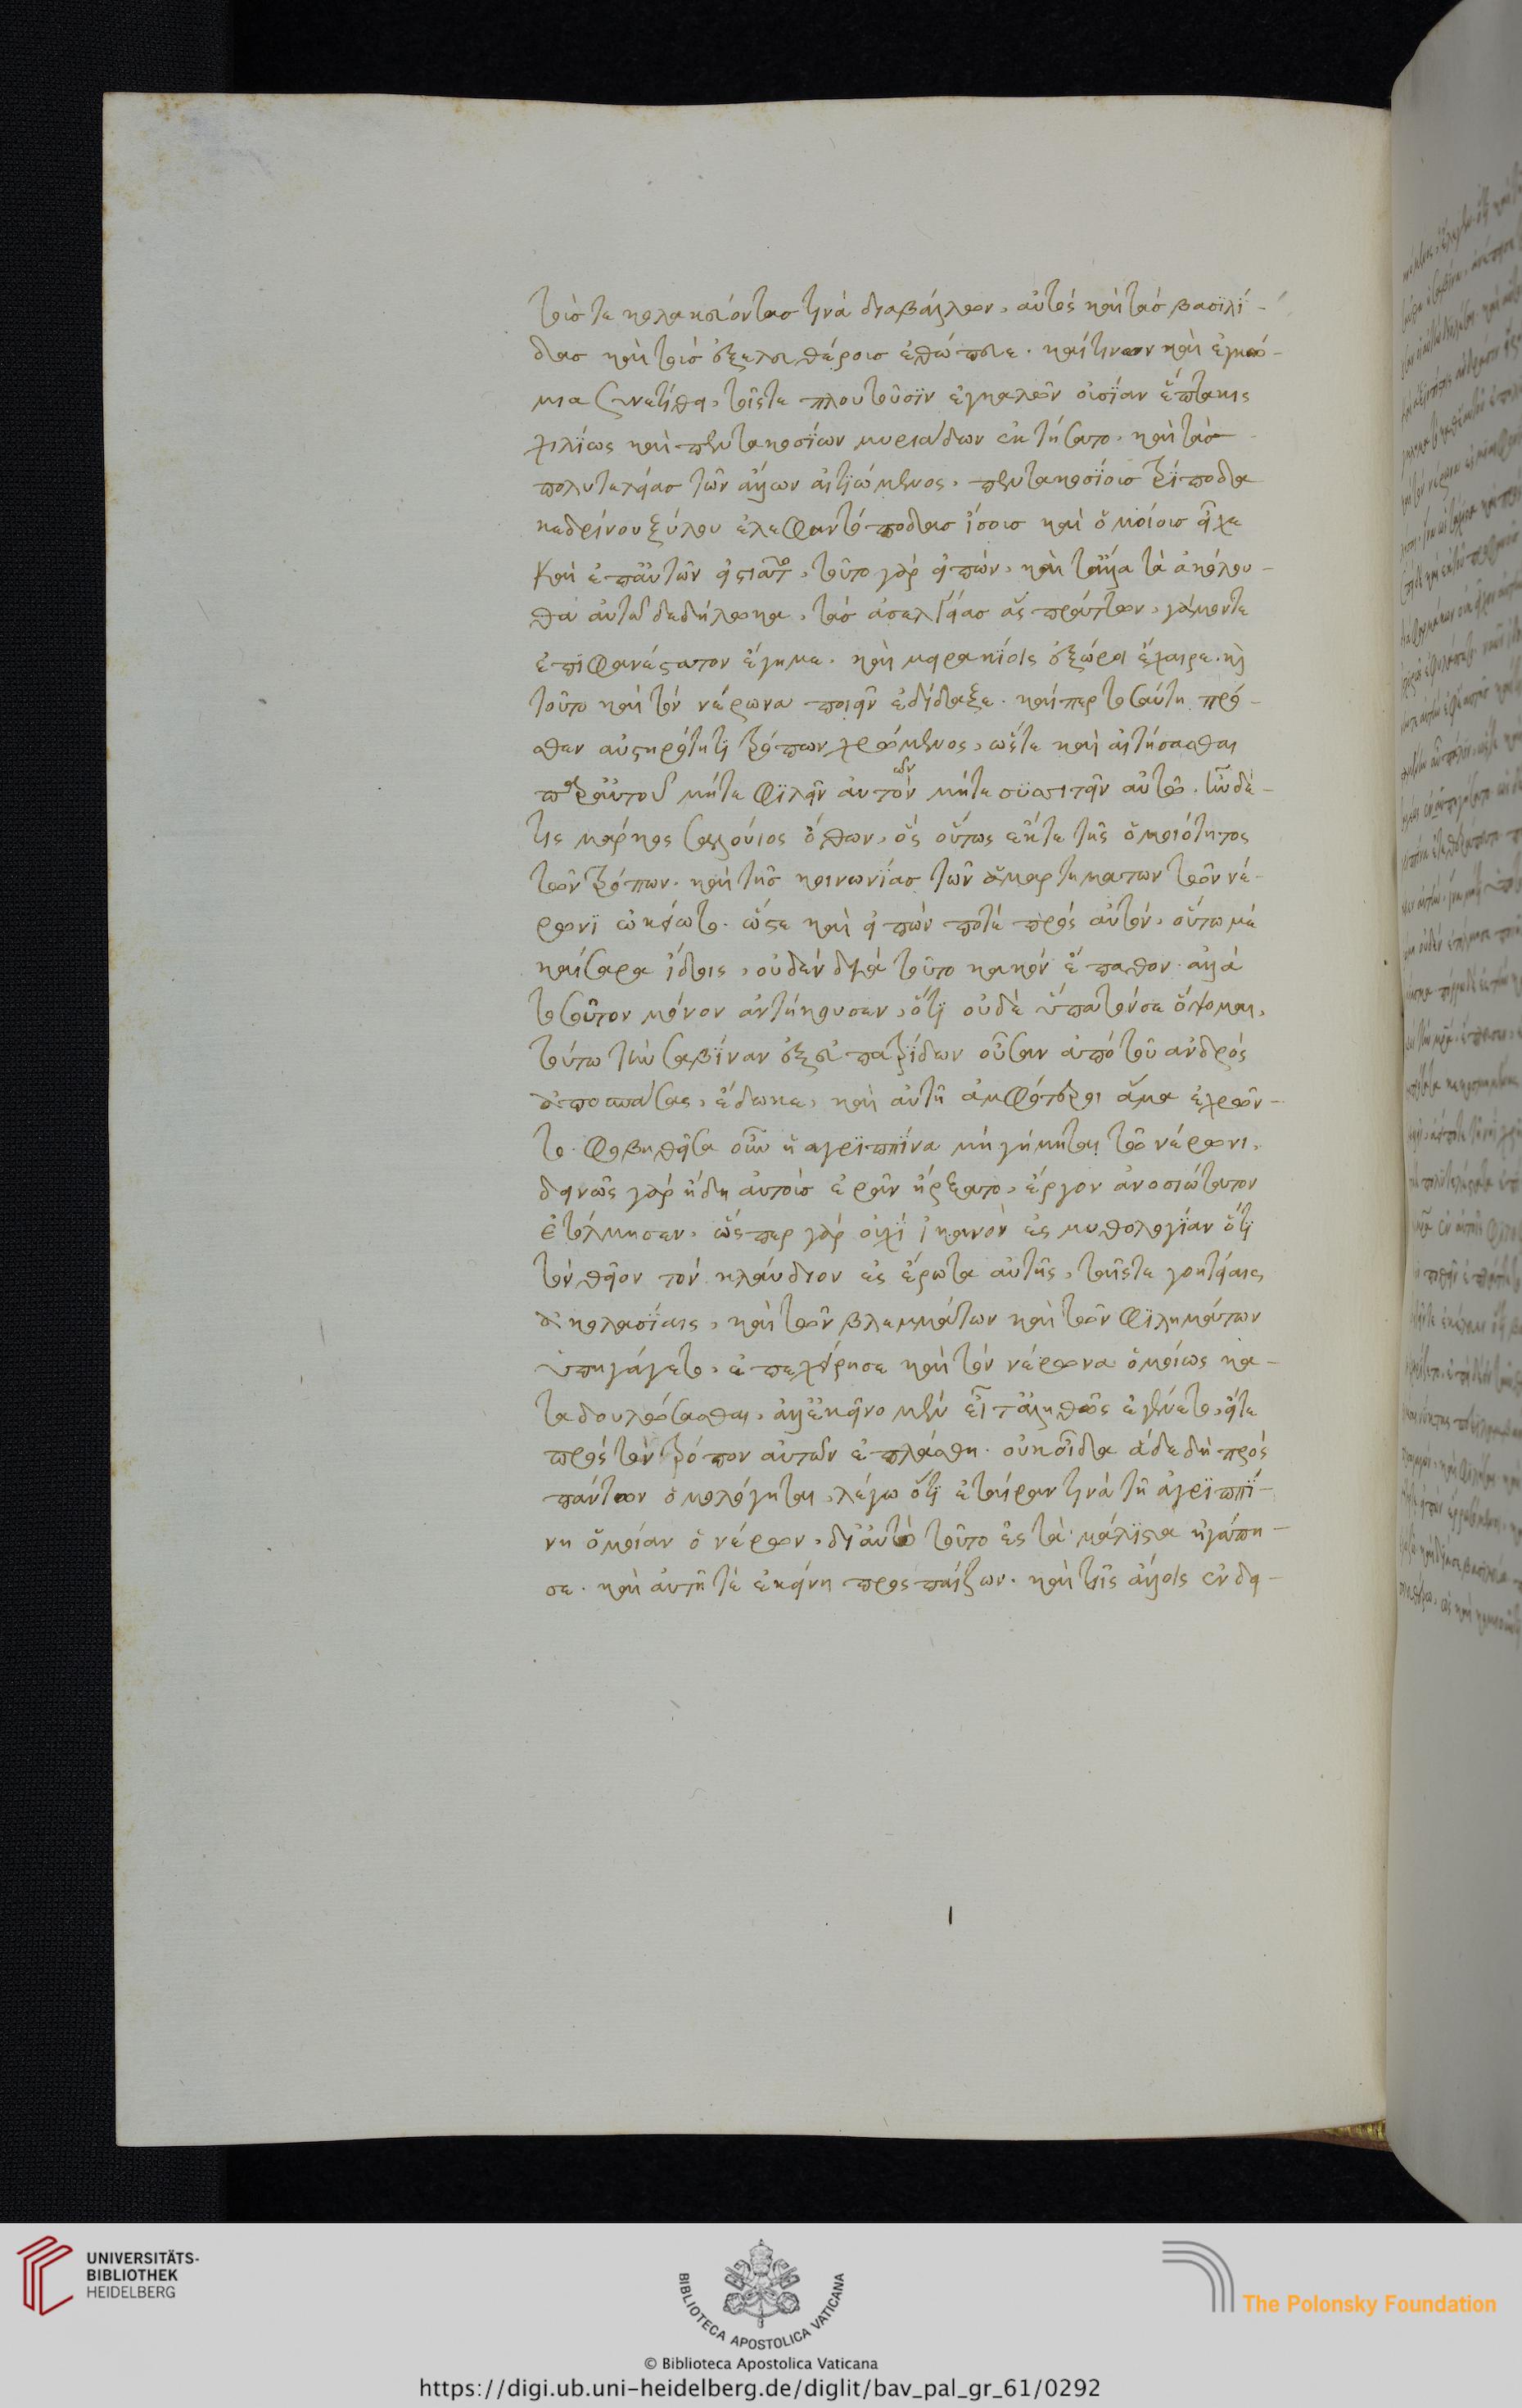 τοῖς τε κολακεύοντας τινὰ διαβάλλων, αὐτὸς καὶ τὰς βασιλί-
δας καὶ τοὺς ἐξελευθέροις ἐθώπευε. καί τινων καὶ ἐγκώ-
μια συνετίθει, τοῖς τε πλουτοῦσϊν ἐγκαλῶν οὐσίαν ἕπτακις
χιλίως καὶ πεντακοσΐων μυριάδων ἐκτήσατο. καὶ τὰς
πολυτελείας τῶν ἄλλων αἰτϊώμενος, πεντακοσΐοις τρΐποδα
κεδρίνου ξύλου ἐλεφαντόποδας ἴσοις καὶ ὁμοίοις εἶχε
καὶ ἐπ' αὐτῶν εἱστιᾶτο, τοῦτο γὰρ εἰπὼν, καὶ τἄλλα τὰ ἀκόλου-
θα αὐτῶ δεδήλωκα, τὰς ἀσελγείας ἃς πράττων, γάμον τε
ἐπϊφανέστατον ἔγημε. καὶ μειρακΐοις ἐξώροι ἔχαιρε. καὶ
τοῦτο καὶ τὸν νέρωνα ποιεῖν ἐδίδαξε. καίπερ τοσαύτη πρό-
σθεν αὐστηρότητι τρόπων χρώμενος, ὥστε καὶ αἰτήσασθαι
παρ' αὐτοῦ μήτε φϊλεῖν αὐτὸν μήτε συσιτεῖν αὐτῶ. ἦν δέ
τις μάρκος σαλούιος ὄθων, ὃς οὕτως ἔκ τε τῆς ὁμοιότητος
τῶν τρόπων. καὶ τῆς κοινωνΐας τῶν ἁμαρτημάτων τῶν νέ-
ρωνϊ ὠκείωτο. ὥστε καὶ εἰπών ποτέ πρὸς αὐτὸν, οὕτω μὲ
καίσαρα ἴδοις, οὐδὲν διὰ τοῦτο κακὸν ἔπαθον. ἀλλὰ
τοσοῦτον μόνον ἀντήκουσεν, ὅτϊ οὐδὲ ὕπατόν σε ὄψομαι,
τούτω τὴν σαβῖναν ἐξ εὐπατρϊδων οὖσαν ἀπὸ τοῦ ἀνδρὸς
ἀποσπάσας, ἔδωκε, καὶ αὐτῆ ἀμφότεροι ἅμα ἐχρῶν-
το. φοβηθεῖσα οὖν ἡ ἀγρϊππῖνα μὴ γήμηται τῶ νέρωνι,
δεινῶς γὰρ ἤδη αὐτοῖς ἐρᾶν ἤρξατο, ἔργον ἀνοσιώτατον
ἐτόλμησεν. ὥσπερ γὰρ οὐχΐ ἱκανὸν ἐς μυθολογΐαν ὅτϊ
τὸν θεῖον τὸν κλαύδιον ἐς ἔρωτα αὐτῆς, ταῖς τε γοητείαις
ἀκολασΐαις, καὶ τῶν βλεμμάτων καὶ τῶν φϊλημάτων
ὑπηγάγετο, ἐπεχείρησε καὶ τὸν νέρωνα ὁμοίως κα-
ταδουλώσασθαι. ἀλλ' ἐκεῖνο μὲν εἴ τ' ἀληθῶς ἐγένετο, εἴτε
πρὸς τὸν τρόπον αὐτῶν ἐπλάσθη. οὐκ οἶδα ἃ δε δὴ πρὸς
πάντων ὁμολόγηται, λέγω ὅτϊ ἑταίραν τινὰ τῆ ἀγρϊππί-
νη ὁμοίαν ὁ νέρων, δι' αὐτὸ τοῦτο ἐς τὰ μάλϊστα ἠγάπη-
σε. καὶ αὐτῆ τὲ ἐκείνη προσπαίζων. καὶ τοῖς ἄλλοις ἐνδει-
UNIVERSITÄTS-
BIBLIOTHEK
HEIDELBERG
BIBLIOTECA APOSTOLICA VATICANA
The Polonsky Foundation
© Biblioteca Apostolica Vaticana
https://digi.ub.uni-heidelberg.de/diglit/bav_pal_gr_61/0292